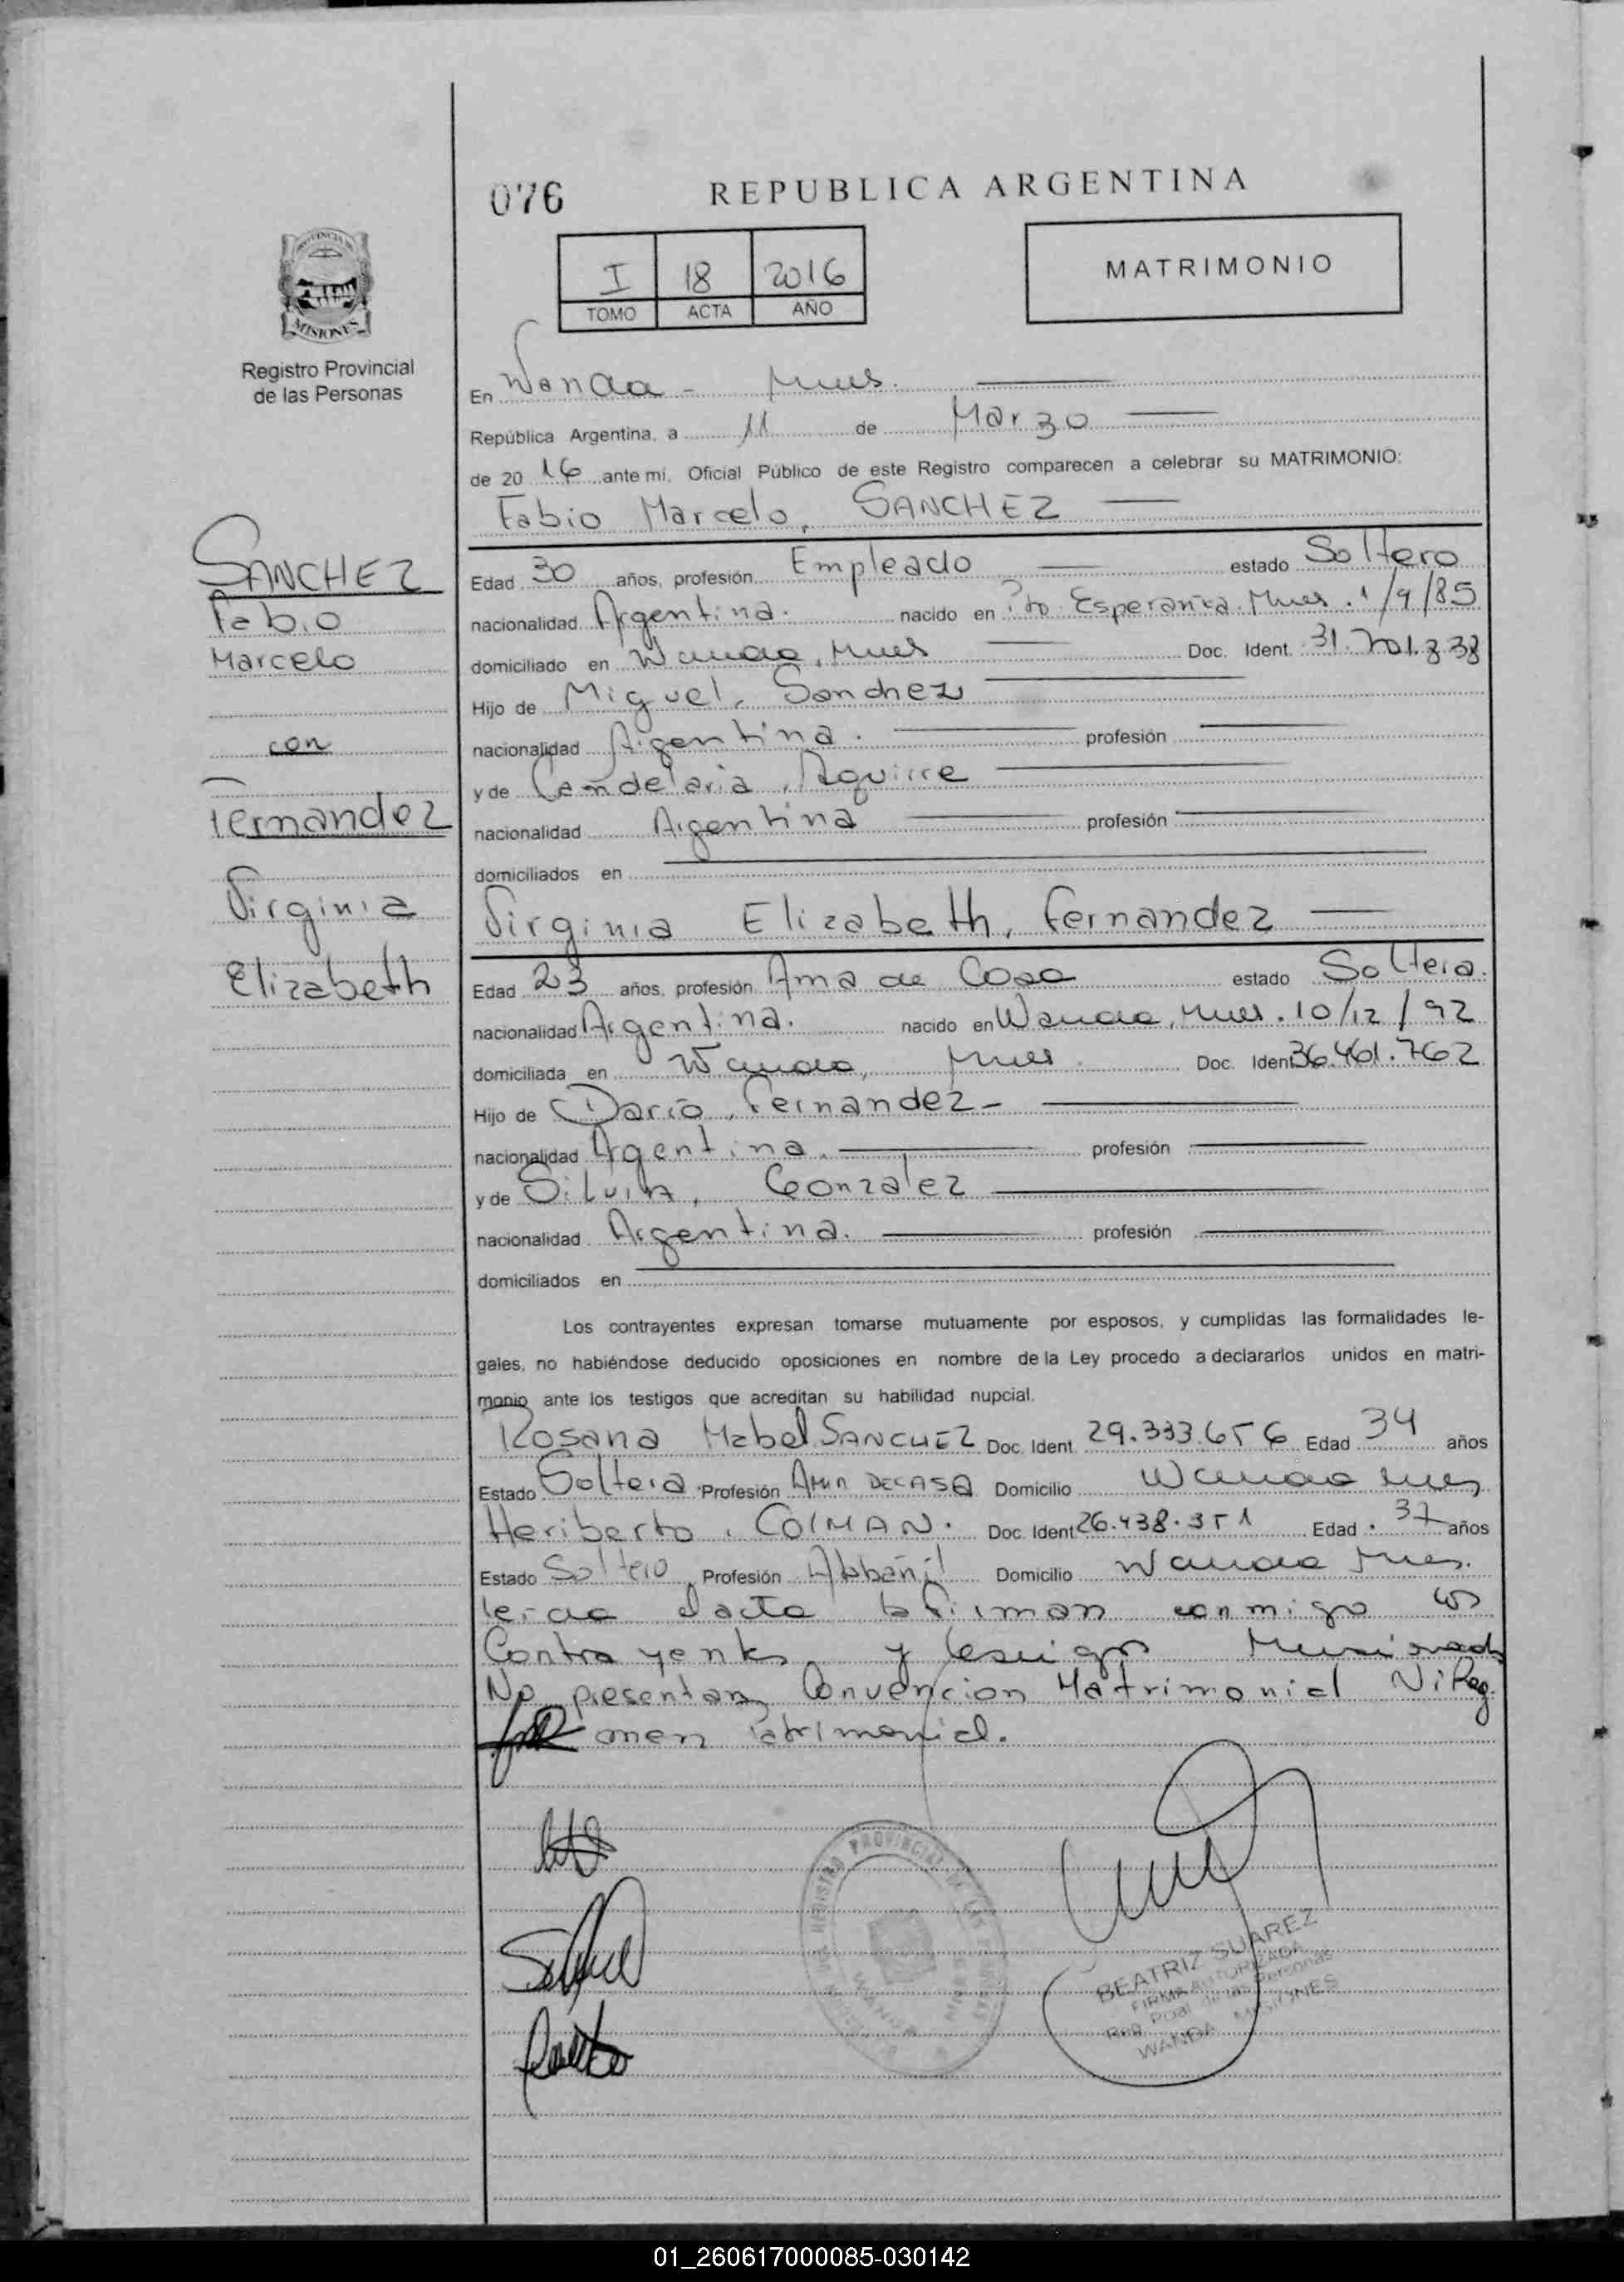 076
REPUBLICA ARGENTINA
I 18 2016
TOMO ACTA AÑO
MATRIMONIO
PROVINCIA DE
MISIONES
Registro Provincial
de las Personas
En Wanda - Mnes.
República Argentina, a 11 de Marzo
de 20 16 ante mi, Oficial Público de este Registro comparecen a celebrar su MATRIMONIO:
Fabio Marcelo, SANCHEZ
SANCHEZ
Fabio
Marcelo
con
Fernandez
Virginia
Elizabeth
Edad 30 años, profesión Empleado estado Soltero
nacionalidad Argentina. nacido en Pto. Esperanza. Mnes. 1/9/85
domiciliado en Wanda, Mnes Doc. Ident. 31.701.838
Hijo de Miguel, Sanchez
nacionalidad Argentina. profesión
y de Candelaria, Aguirre
nacionalidad Argentina profesión
domiciliados en
Virginia Elizabeth, Fernandez
Edad 23 años, profesión Ama de Casa estado Soltera.
nacionalidad Argentina. nacido en Wanda, Mnes. 10/12/92
domiciliada en Wanda, Mnes. Doc. Ident 36.461.762
Hijo de Dario, Fernandez-
nacionalidad Argentina. profesión
y de Silvia, Gonzalez
nacionalidad Argentina. profesión
domiciliados en
Los contrayentes expresan tomarse mutuamente por esposos, y cumplidas las formalidades le-
gales, no habiéndose deducido oposiciones en nombre de la Ley procedo a declararlos unidos en matri-
monio ante los testigos que acreditan su habilidad nupcial.
Rosana Mabel SANCHEZ Doc. Ident. 29.333.656 Edad 34 años
Estado Soltera Profesión AMA DE CASA Domicilio Wanda Mnes
Heriberto, COLMAN. Doc. Ident 26.438.351 Edad 37 años
Estado Soltero Profesión Albañil Domicilio Wanda Mnes.
leida el acta la firman conmigo los
Contrayentes y testigos
No presentan Convencion Matrimonial Ni Reg.
men Patrimonial.
REGISTRO PROVINCIAL DE LAS PERSONAS
WANDA
BEATRIZ SUAREZ
FIRMA AUTORIZADA
Reg. Pcial de las Personas
WANDA MISIONES
01_260617000085-030142